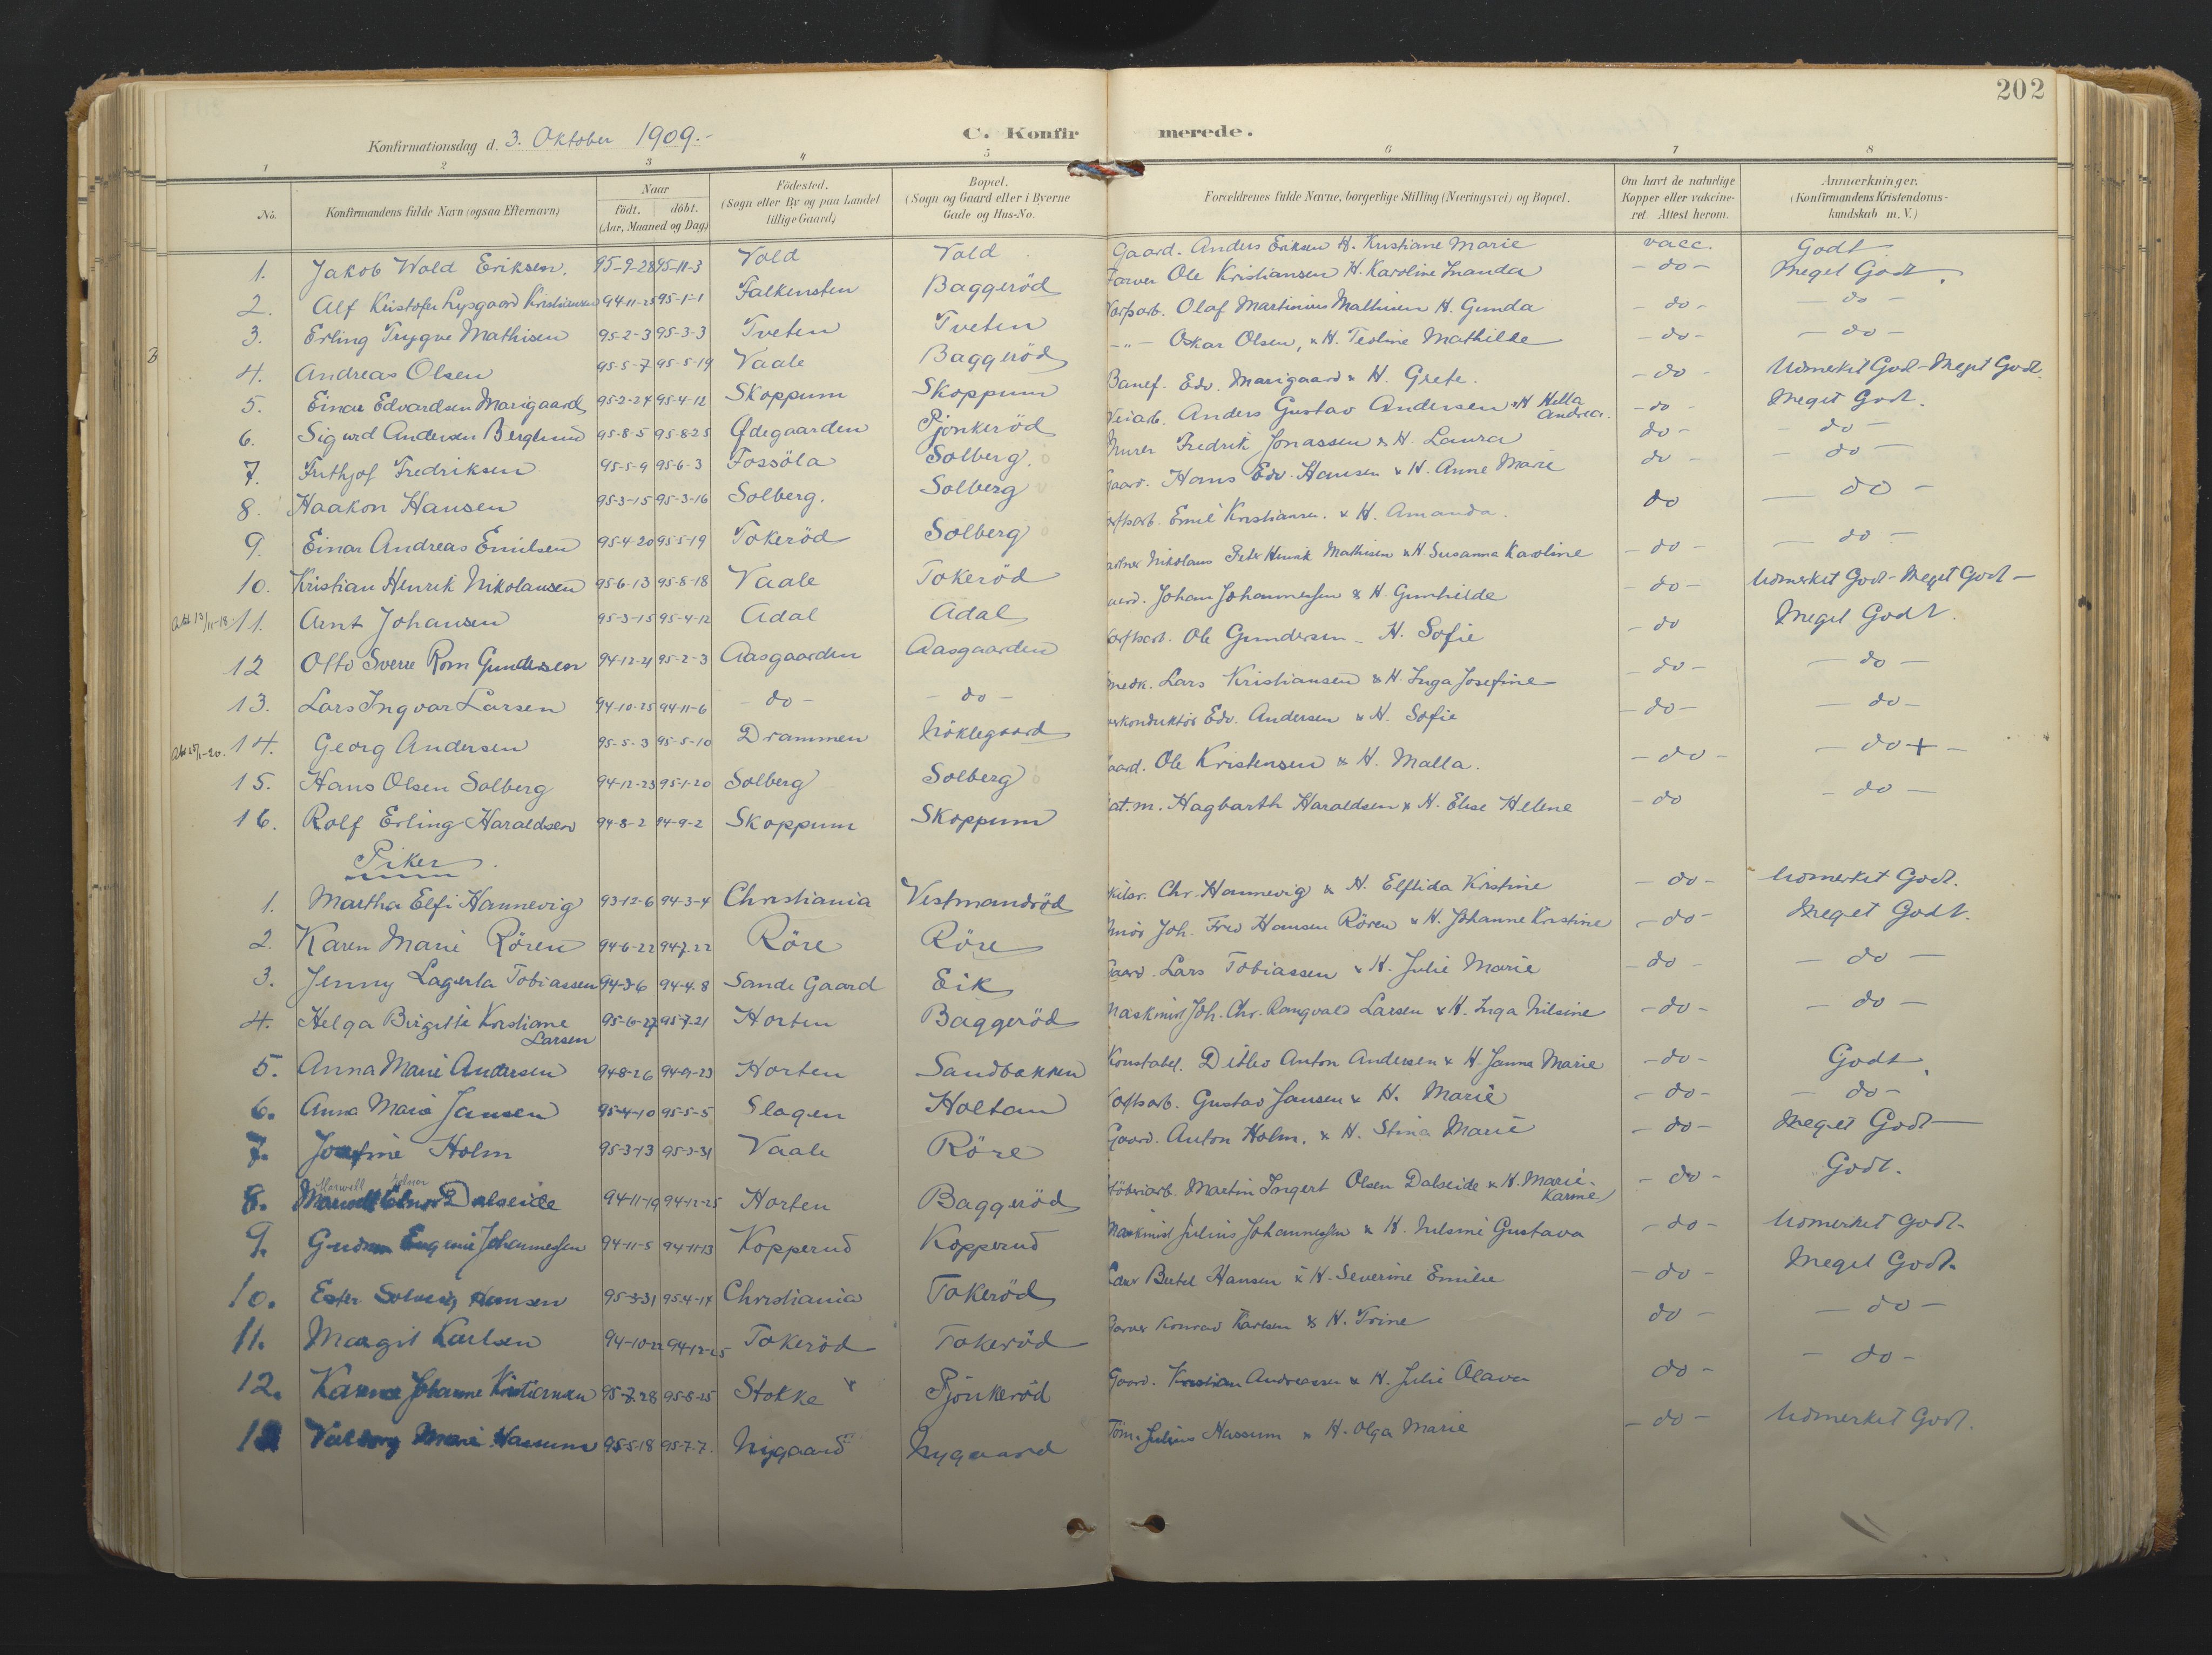 202
Konfirmationsdag d. 3. Oktober 1909.-
C. Konfirmerede.
1 2 3 4 5 6 7 8
No. Konfirmandens fulde Navn (ogsaa Efternavn) Naar födt. döbt. (Aar, Maaned og Dag) Födested. (Sogn eller By og paa Landet tillige Gaard) Bopæl. (Sogn og Gaard eller i Byerne Gade og Hus-No. Forældrenes fulde Navne, borgerlige Stilling (Næringsvei) og Bopæl. Om havt de naturlige Kopper eller vakcineret. Attest herom. Anmærkninger. (Konfirmandens Kristendomskundskab m. V.)
1. Jakob Wold Eriksen. 95-9-28 95-11-3 Vold Vold Gaard. Anders Eriksen H. Kristiane Marie vacc. Godt
2. Alf Kristofer Lysgaard Kristiansen 94-11-25 95-1-1 Falkensten Baggeröd Farver Ole Kristiansen H. Karoline Inanda -do- Meget Godt.
3. Erling Trygve Mathisen 95-2-3 95-3-3 Tveten Tveten Olaf Martinius Mathisen H. Gunda -do- -do-
4. Andreas Olsen 95-5-7 95-5-19 Vaale Baggeröd -"- Oskar Olsen, & H. Teoline Mathilde -do- -do-
5. Einar Edvardsen Marigaard 95-2-24 95-4-12 Skoppum Skoppum Banef. Edv. Marigaard & H. Grete. -do- Udmerket God-Meget Godt.
6. Sigurd Andersen Berglund 95-8-5 95-8-25 Ødegaarden Pjonkeröd Veiarb. Anders Gustav Andersen & H Hilla Andrea. -do- Meget Godt.
7. Frithjof Fredriksen 95-5-9 95-6-3 Fossöla Solberg. Murer Fredrik Jonassen & H. Laura do- -do-
8. Haakon Hansen 95-3-15 95-3-16 Solberg. Solberg Gaard. Hans Edv. Hansen & H. Anne Marie do- -do-
9. Einar Andreas Emilsen 95-4-20 95-5-19 Tokeröd Solberg Emil Kristiansen. & H. Amanda. do -do-
10. Kristian Henrik Nikolausen 95-6-13 95-8-18 Vaale Tokeröd Nikolaus Peter Henrik Mathisen & H. Susanna Karoline -do- -do-
11. Arnt Johansen 95-3-15 95-4-12 Adal Adal Johan Johannessen & H. Gunhilde -do- Udmerket God-Meget Godt-
12 Otto Sverre Rom Gundersen 94-12-21 95-2-3 Aasgaarden Aasgaarden Ole Gundersen - H. Sofie -do Meget Godt.
13. Lars Ingvar Larsen 94-10-25 94-11-6 -do- -do- Smedk. Lars Kristiansen & H. Inga Josefine -do- -do-
14. Georg Andersen 95-5-3 95-5-10 Drammen Edv. Andersen & H. Sofie -do- -do-
15. Hans Olsen Solberg 94-12-23 95-1-20 Solberg Solberg Gaard. Ole Kristensen & H. Malla. -do- -do+-
16. Rolf Erling Haraldsen 94-8-2 94-9-2 Skoppum Skoppum Mat.m. Hagbarth Haraldsen & H. Elise Helene -do -do-
Piker.
1. Martha Elfi Hannevig 93-12-6 94-3-4 Christiania Vestmandröd Chr. Hannevig & H. Elftida Kristine -do- Udmerket Godt.
2. Karen Marie Rören 94-6-22 94-7.22 Röre Röre Joh. Fred Hansen Rören & H. Johanne Kristine -do- Meget Godt.
3. Jenny Lagerta Tobiassen 94-3-6 94-4.8 Sande Gaard Eik Gaard. Lars Tobiassen & H. Julie Marie -do- -do-
4. Helga Birgitte Kristiane Larsen 95-6-27 95-7-21 Horten Baggeröd Maskinist Joh. Chr. Rangvald Larsen & H. Inga Nilsine -do- -do-
5. Anna Marie Andersen 94-8-26 94-9-23 Horten Sandbakken Konstabel. Ditlev Anton Andersen & H. Janna Marie -do- Godt.
6. Anna Marie Jansen 95-4-10 95-5-5 Slagen Holtan Gustav Jansen & H. Marie -do- -do-
7. Josefine Holm 95-3-13 95-3-31 Vaale Röre Gaard. Anton Holm. & H. Stina Marie -do- Meget Godt-
8. Dalseide 94-11-19 94-12-25 Horten Baggeröd Støberiarb. Martin Ingert Olsen Dalseide & H. Marie Karine -do- Godt.
9. Gudrun Eugenie Johannessen 94-11-5 94-11-13 Kopperud Kopperud Maskinist Julius Johannessen & H. Nilsine Gustava -do- Udmerket Godt-
10. Ester Solveig Hansen 95-3-31 95-4-14 Christiania Tokeröd Bertel Hansen & H. Severine Emilie -do- Meget Godt.
11. Margit Karlsen 94-10-22 94-12-25 Tokeröd Tokeröd Garver Konrad Karlsen & H. Trine do- -do-
12. Johanne Kristiansen 95-7.28 95-8-25 Stokke Pjönkeröd Gaard. Kristian Andreassen & H. Julie Olava do- -do-
13 Valborg Marie Hassum 95-5-18 95-7-7. Nygaard Nygaard Töm. Julius Hassum & H. Olga Marie -do- Udmerket Godt.